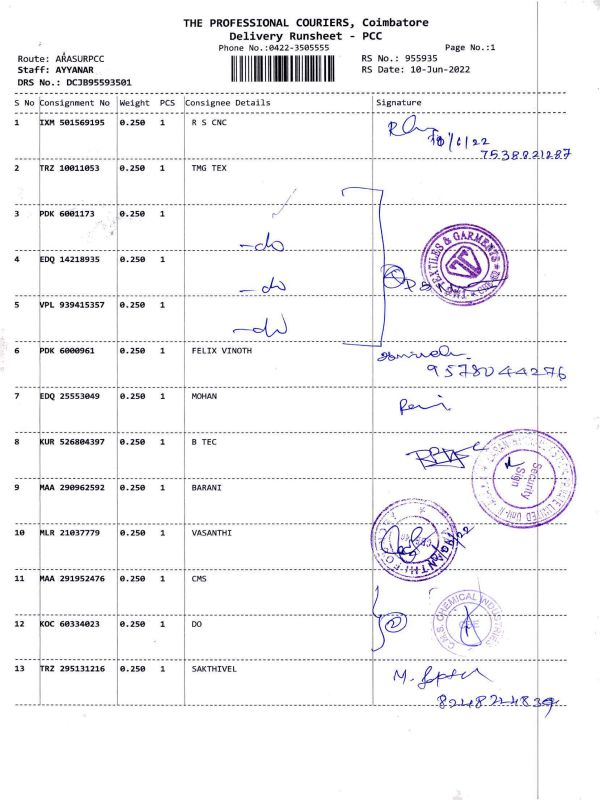 THE PROFESSIONAL COURIERS, Coimbatore
Delivery Runsheet - PCC
Phone No.:0422-3505555 Page No.:1
Route: ARASURPCC RS No.: 955935
Staff: AYYANAR RS Date: 10-Jun-2022
DRS No.: DCJB95593501
S No Consignment No Weight PCS Consignee Details Signature
1 IXM 501569195 0.250 1 R S CNC
7538821287
2 TRZ 10011053 0.250 1 TMG TEX
3 PDK 6001173 0.250 1
-do
4 EDQ 14218935 0.250 1
-do
TEXTILES & GARMENTS
5 VPL 939415357 0.250 1
-do
6 PDK 6000961 0.250 1 FELIX VINOTH
9578044276
7 EDQ 25553049 0.250 1 MOHAN
8 KUR 526804397 0.250 1 B TEC
Security
Sign
9 MAA 290962592 0.250 1 BARANI
10 MLR 21037779 0.250 1 VASANTHI
11 MAA 291952476 0.250 1 CMS
12 KOC 60334023 0.250 1 DO
2
C.M.S. CHEMICAL INDUSTRIES
13 TRZ 295131216 0.250 1 SAKTHIVEL
8248224839